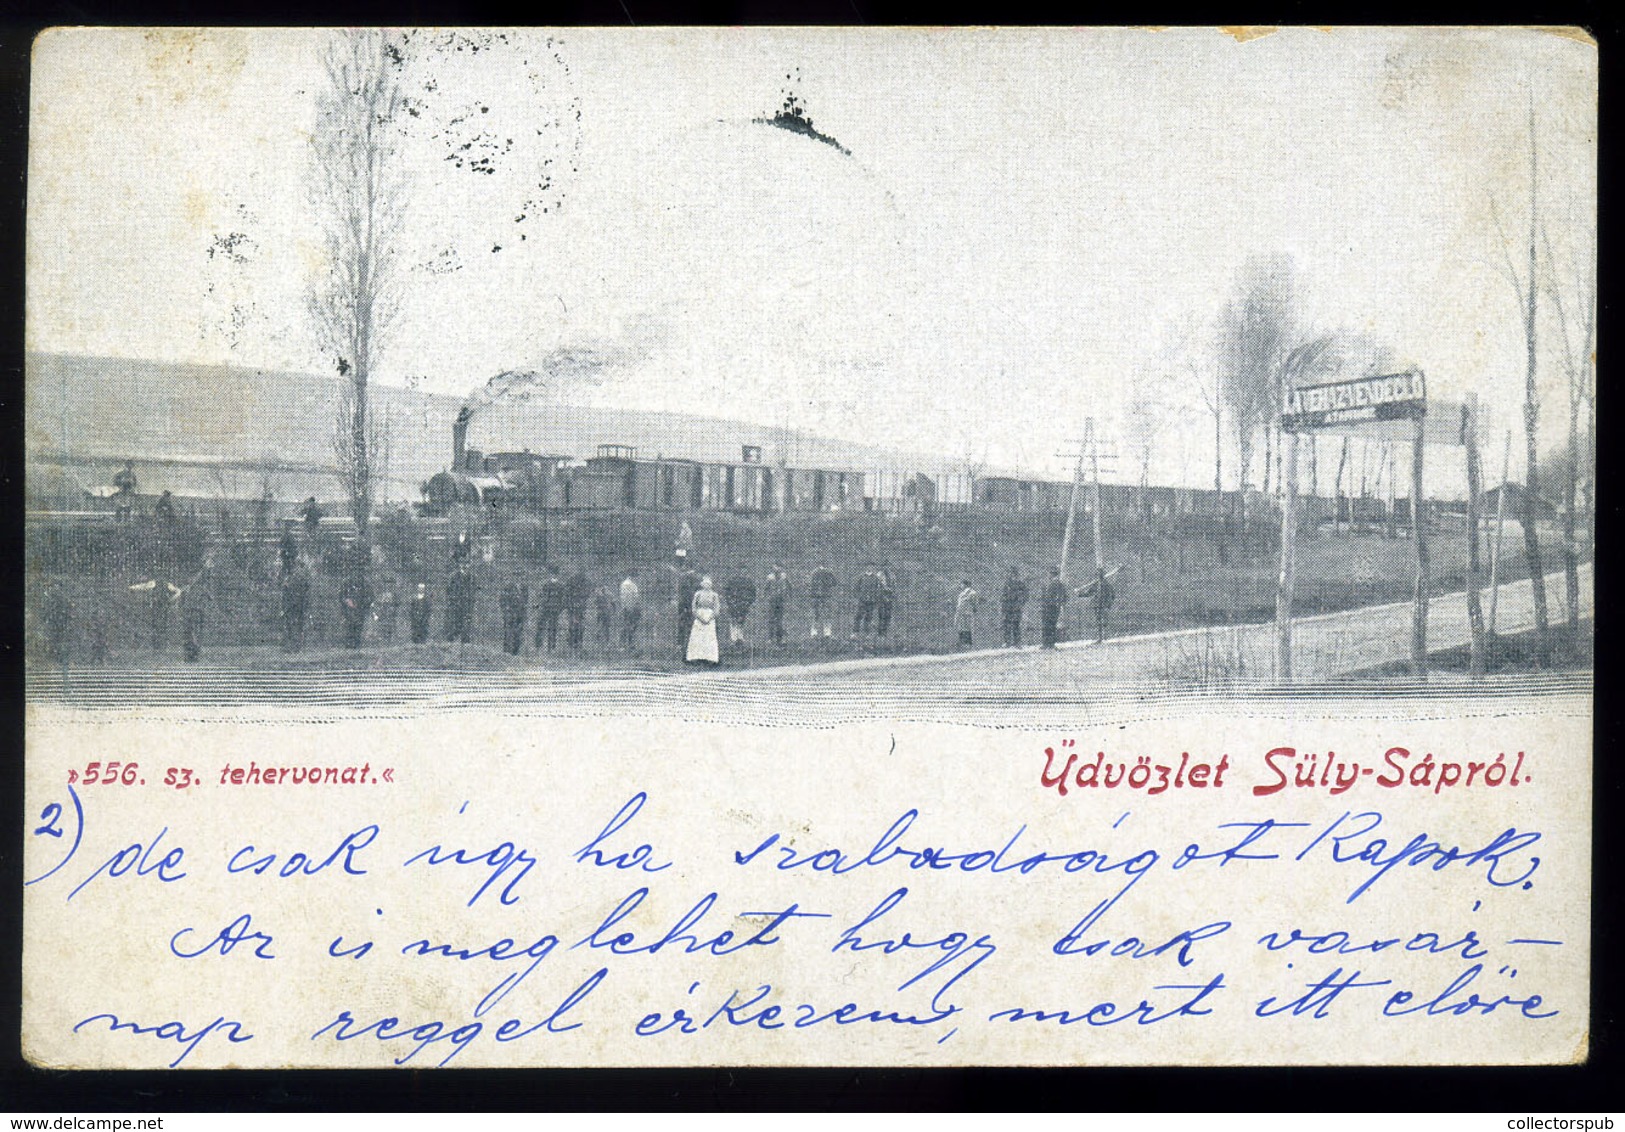 »556. sz. tehervonat.«
Üdvözlet Süly-Sápról.
2)
de csak úgy ha szabadságot kapok.
Az is meglehet hogy csak vasár-
nap reggel érkezem, mert itt előre
www.collectorspub.com
collectorspub